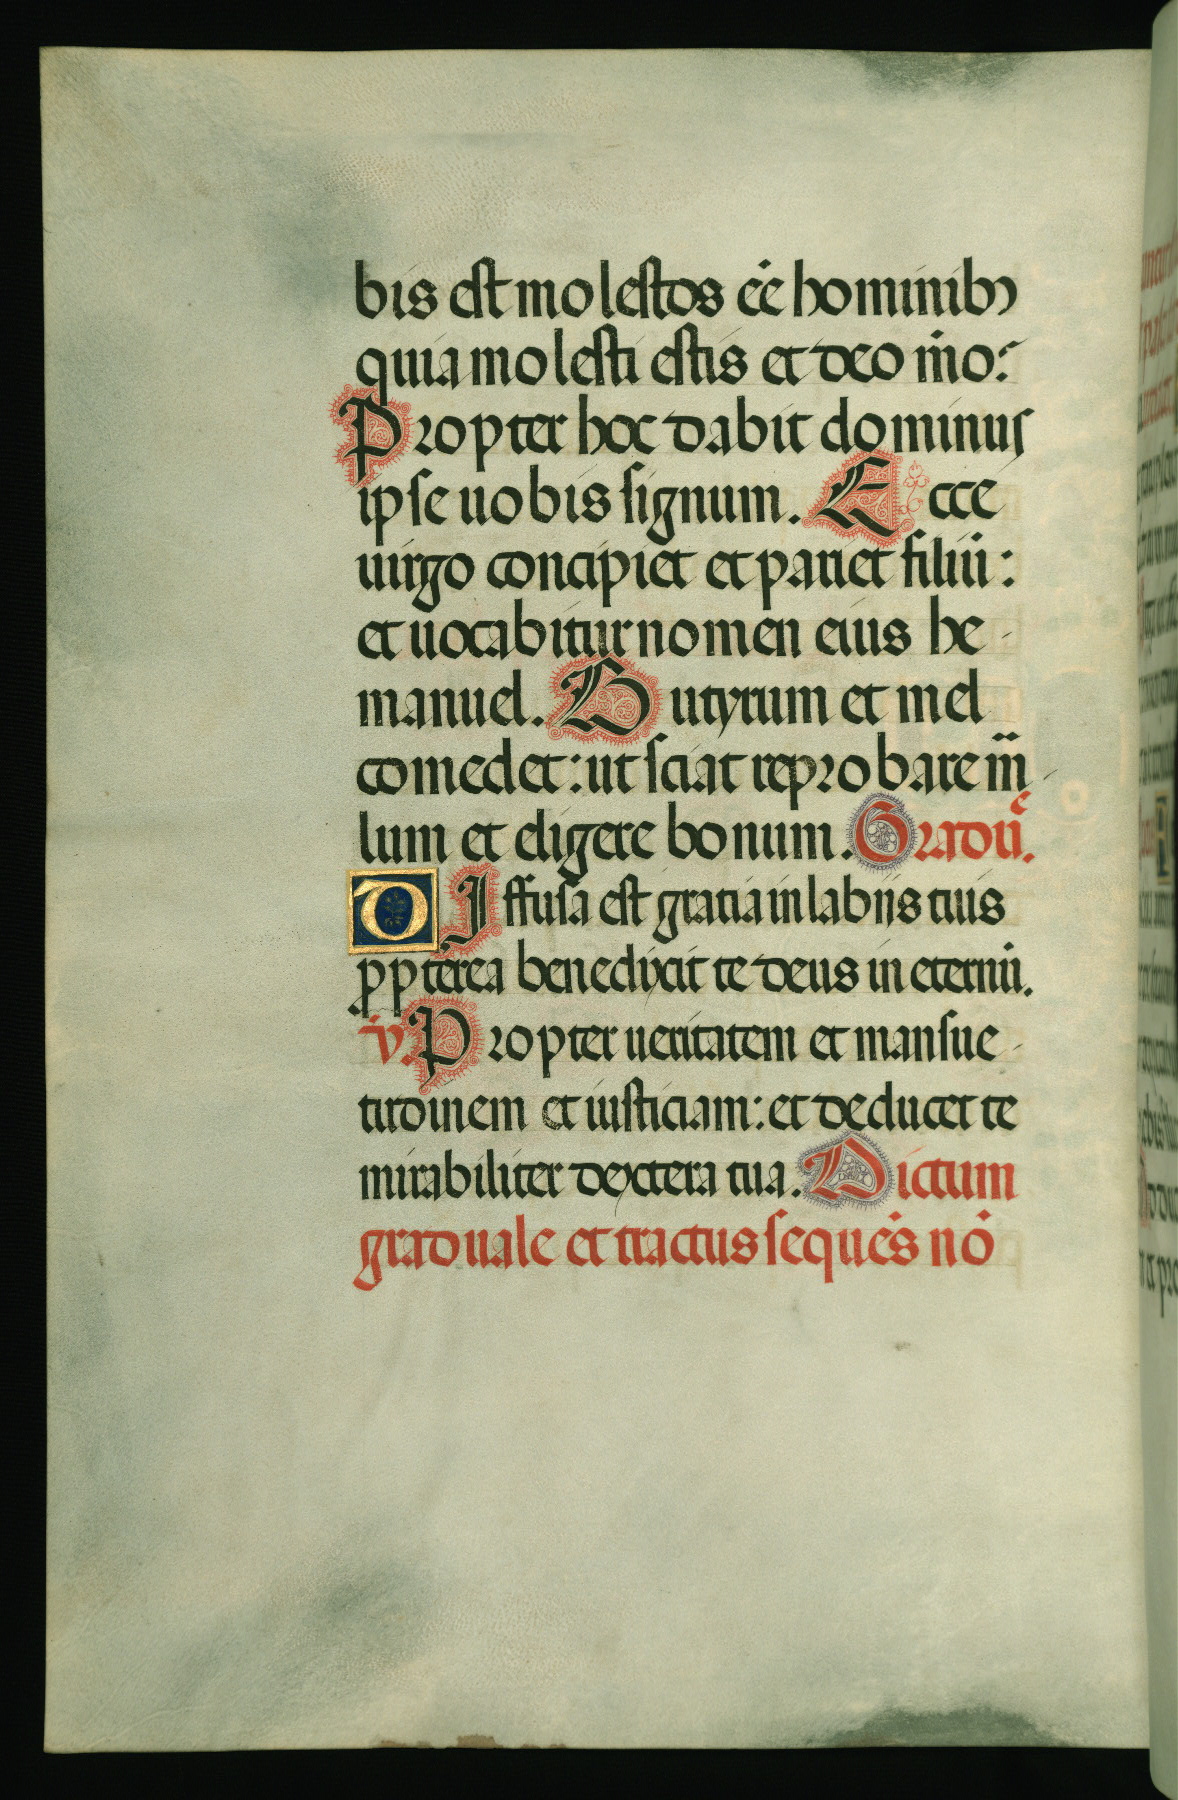 bis est molestos eē hominibꝫ
quia molesti estis et deo mō?
Propter hoc dabit dominus
ipse uobis signum. Ecce
uirgo concipiet et pariet filiū:
et uocabitur nomen eius he-
manuel. Butyrum et mel
comedet: ut sciat reprobare m̄-
lum et eligere bonum. Graduᷓe.
DIffusa est gratia in labiis tuis
ꝓpterea benedixit te deus in eternū.
v̄. Propter ueritatem et mansue-
tudinem et iusticiam: et deducet te
mirabiliter dextera tua. Dictum
graduale et tractus sequēs nō